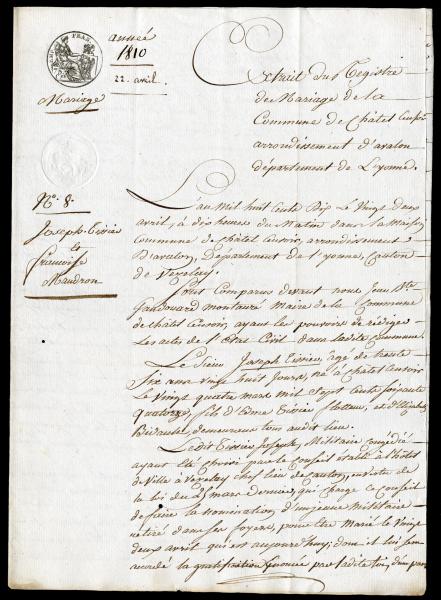 année
1810
22. avril.
Mariage
Nº. 8.
Joseph Tissier
&
françoise
Naudron
Extrait du Registre
de Mariage de la
Commune de Châtel Censoir
arrondissement d'avalon
département de L'yonne.
L'an Mil huit Cents Dix Le Vingt deux
avril, à dix heures du Matin dans la Maison
Commune de Châtel Censoir, arrondissement
D'avalon, Département de l'yonne, Canton
de Vezelay.
Sont Comparus devant nous Jean Bte
Maire de la Commune
de Châtel Censoir, ayant les pouvoirs de rédiger
Les actes de l'Etat Civil dans ladite Commune.
Le Sieur Joseph Tissier, âgé de trente
Six ans vingt huit Jours, né à Châtel Censoir
Le Vingt quatre mars mil Sept Cents Soixante
Quatorze, fils d'Edme Tissier flotteur, et d'Elizabeth
demeureus tous audit lieu.
Ledit Tissier Joseph, Militaire Congédié
ayant Eté Choisi par le Conseil établi à l'hôtel
de Ville à Vezelay chef lieu de Canton, en vertu de
la loi du 25 mars dernier, qui charge ce Conseil
de faire la nomination d'un jeune Militaire
retiré dans ses foyers, pour être Marié le Vingt
deux avril qui est aujourd'huy; dont il lui sera
accordé la gratification énoncée par ladite loi, d'un part